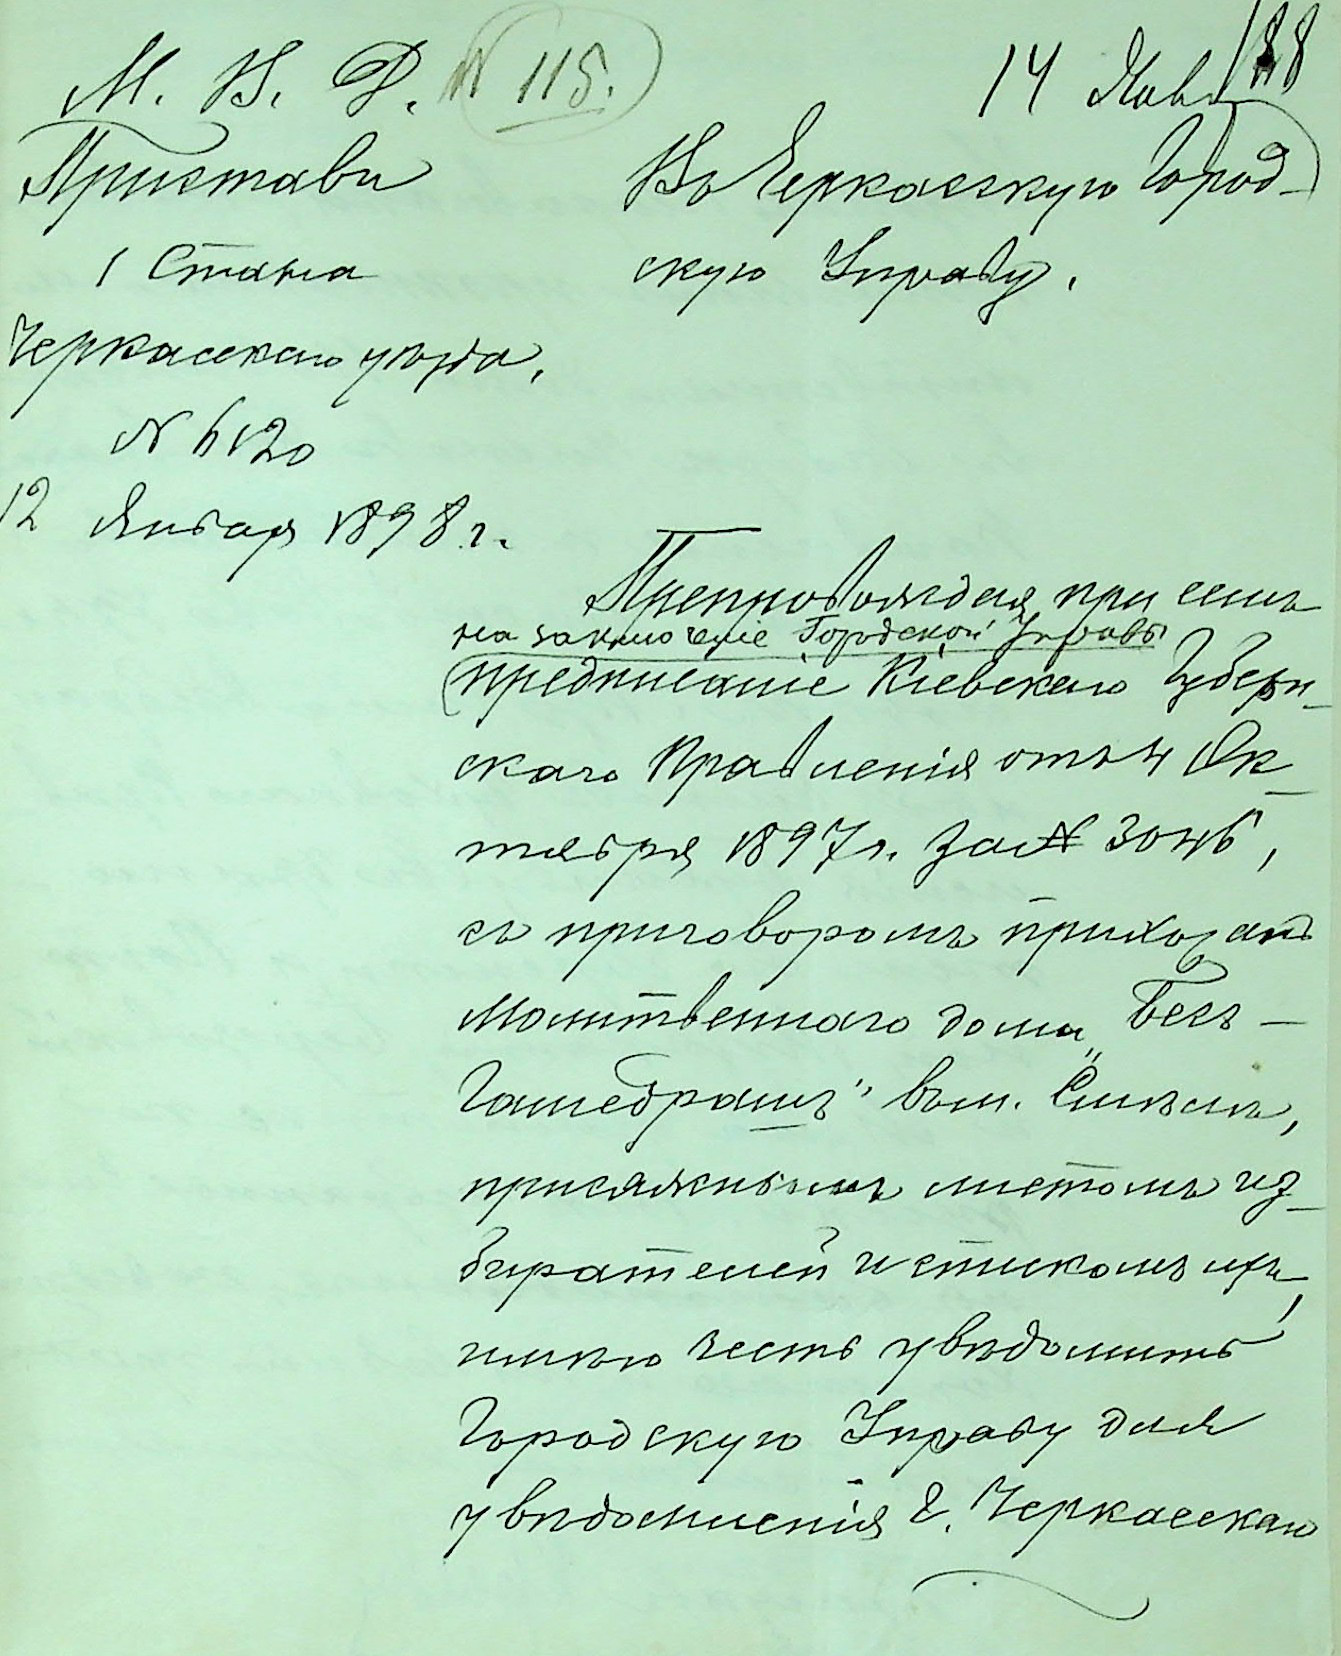 М. В. Д.
№ 115.
14 Янв
88
Приставъ
1 Стана
Черкасскаго уѣзда.
№ 6120
12 Января 1898 г.
Въ Черкасскую Город-
скую Управу.
Препровождая при семъ
на заключеніе Городской Управы
предписаніе Кіевскаго Губерн-
скаго Правленія отъ 4 Ок-
тября 1897 г. за №
съ приговоромъ прихожанъ
Молитвеннаго дома „Бесъ-
Гамедрашъ" въ м. Смѣлѣ,
присяжнымъ листомъ из-
бирателей и спискомъ ихъ,
имѣю честь увѣдомить
Городскую Управу для
увѣдомленія Г. Черкасскаго